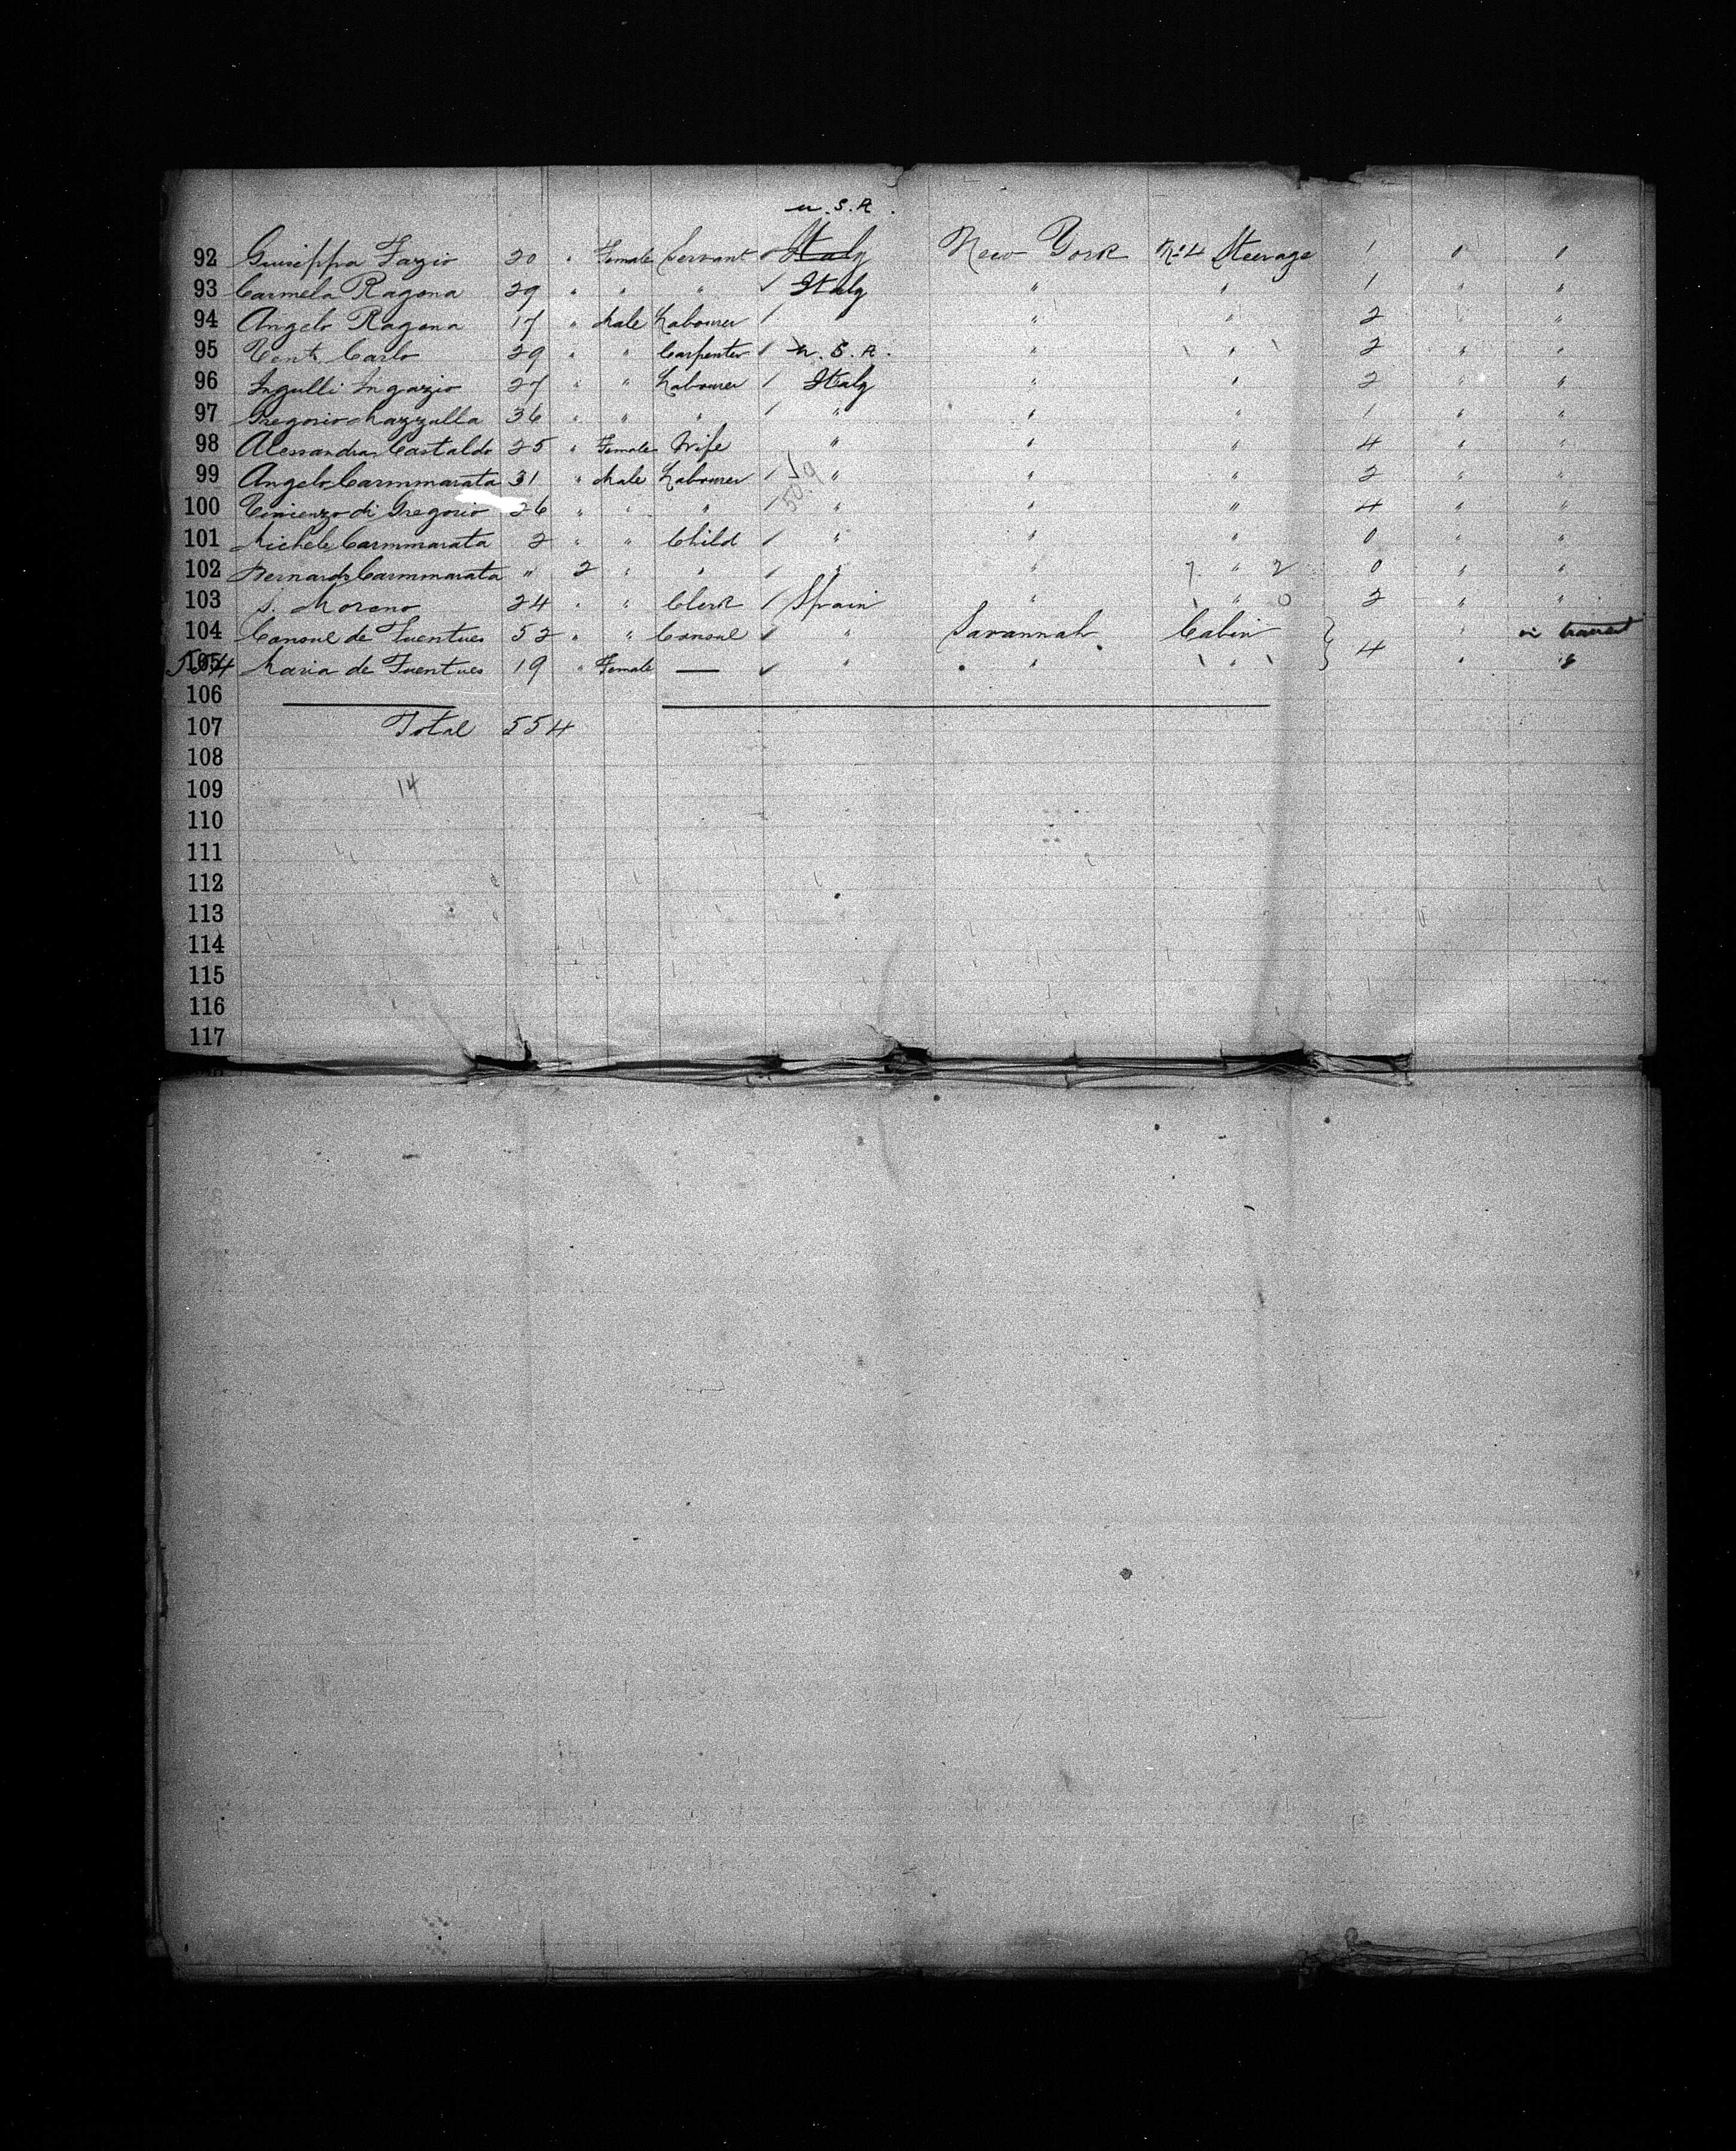 U.S.A.
92 Giuseppa Fazio 20 " Female Servant / Italy New York No 4 Steerage 1 " "
93 Carmela Ragona 29 " " " / Italy " " 1 " "
94 Angelo Ragona 17 " Male Labourer / " " 2 " "
95 Conti Carlo 29 " " Carpenter / U.S.A. " " 2 " "
96 Ingulli Ingazio 27 " " Labourer / Italy " " 2 " "
97 Gregorio Mazzulla 36 " " " / " " " 1 " "
98 Alessandra Castaldo 25 " Female Wife " " " 4 " "
99 Angelo Cammarata 31 " Male Labourer / " " " 2 " "
100 Vincenzo di Gregorio 26 " " " / " " " 4 " "
101 Michele Cammarata 2 " " Child / " " " 0 " "
102 Bernardo Cammarata " 2 " " / " " 7 " 2 0 " "
103 S. Moreno 24 " " Clerk / Spain " " 0 2 " "
104 Consul de Fuentues 52 " " Consul / " Savannah Cabin } 4 " in transit
105 554 Maria de Fuentues 19 " Female — / " " " " "
106
107 Total 554
108
109 14
110
111
112
113
114
115
116
117